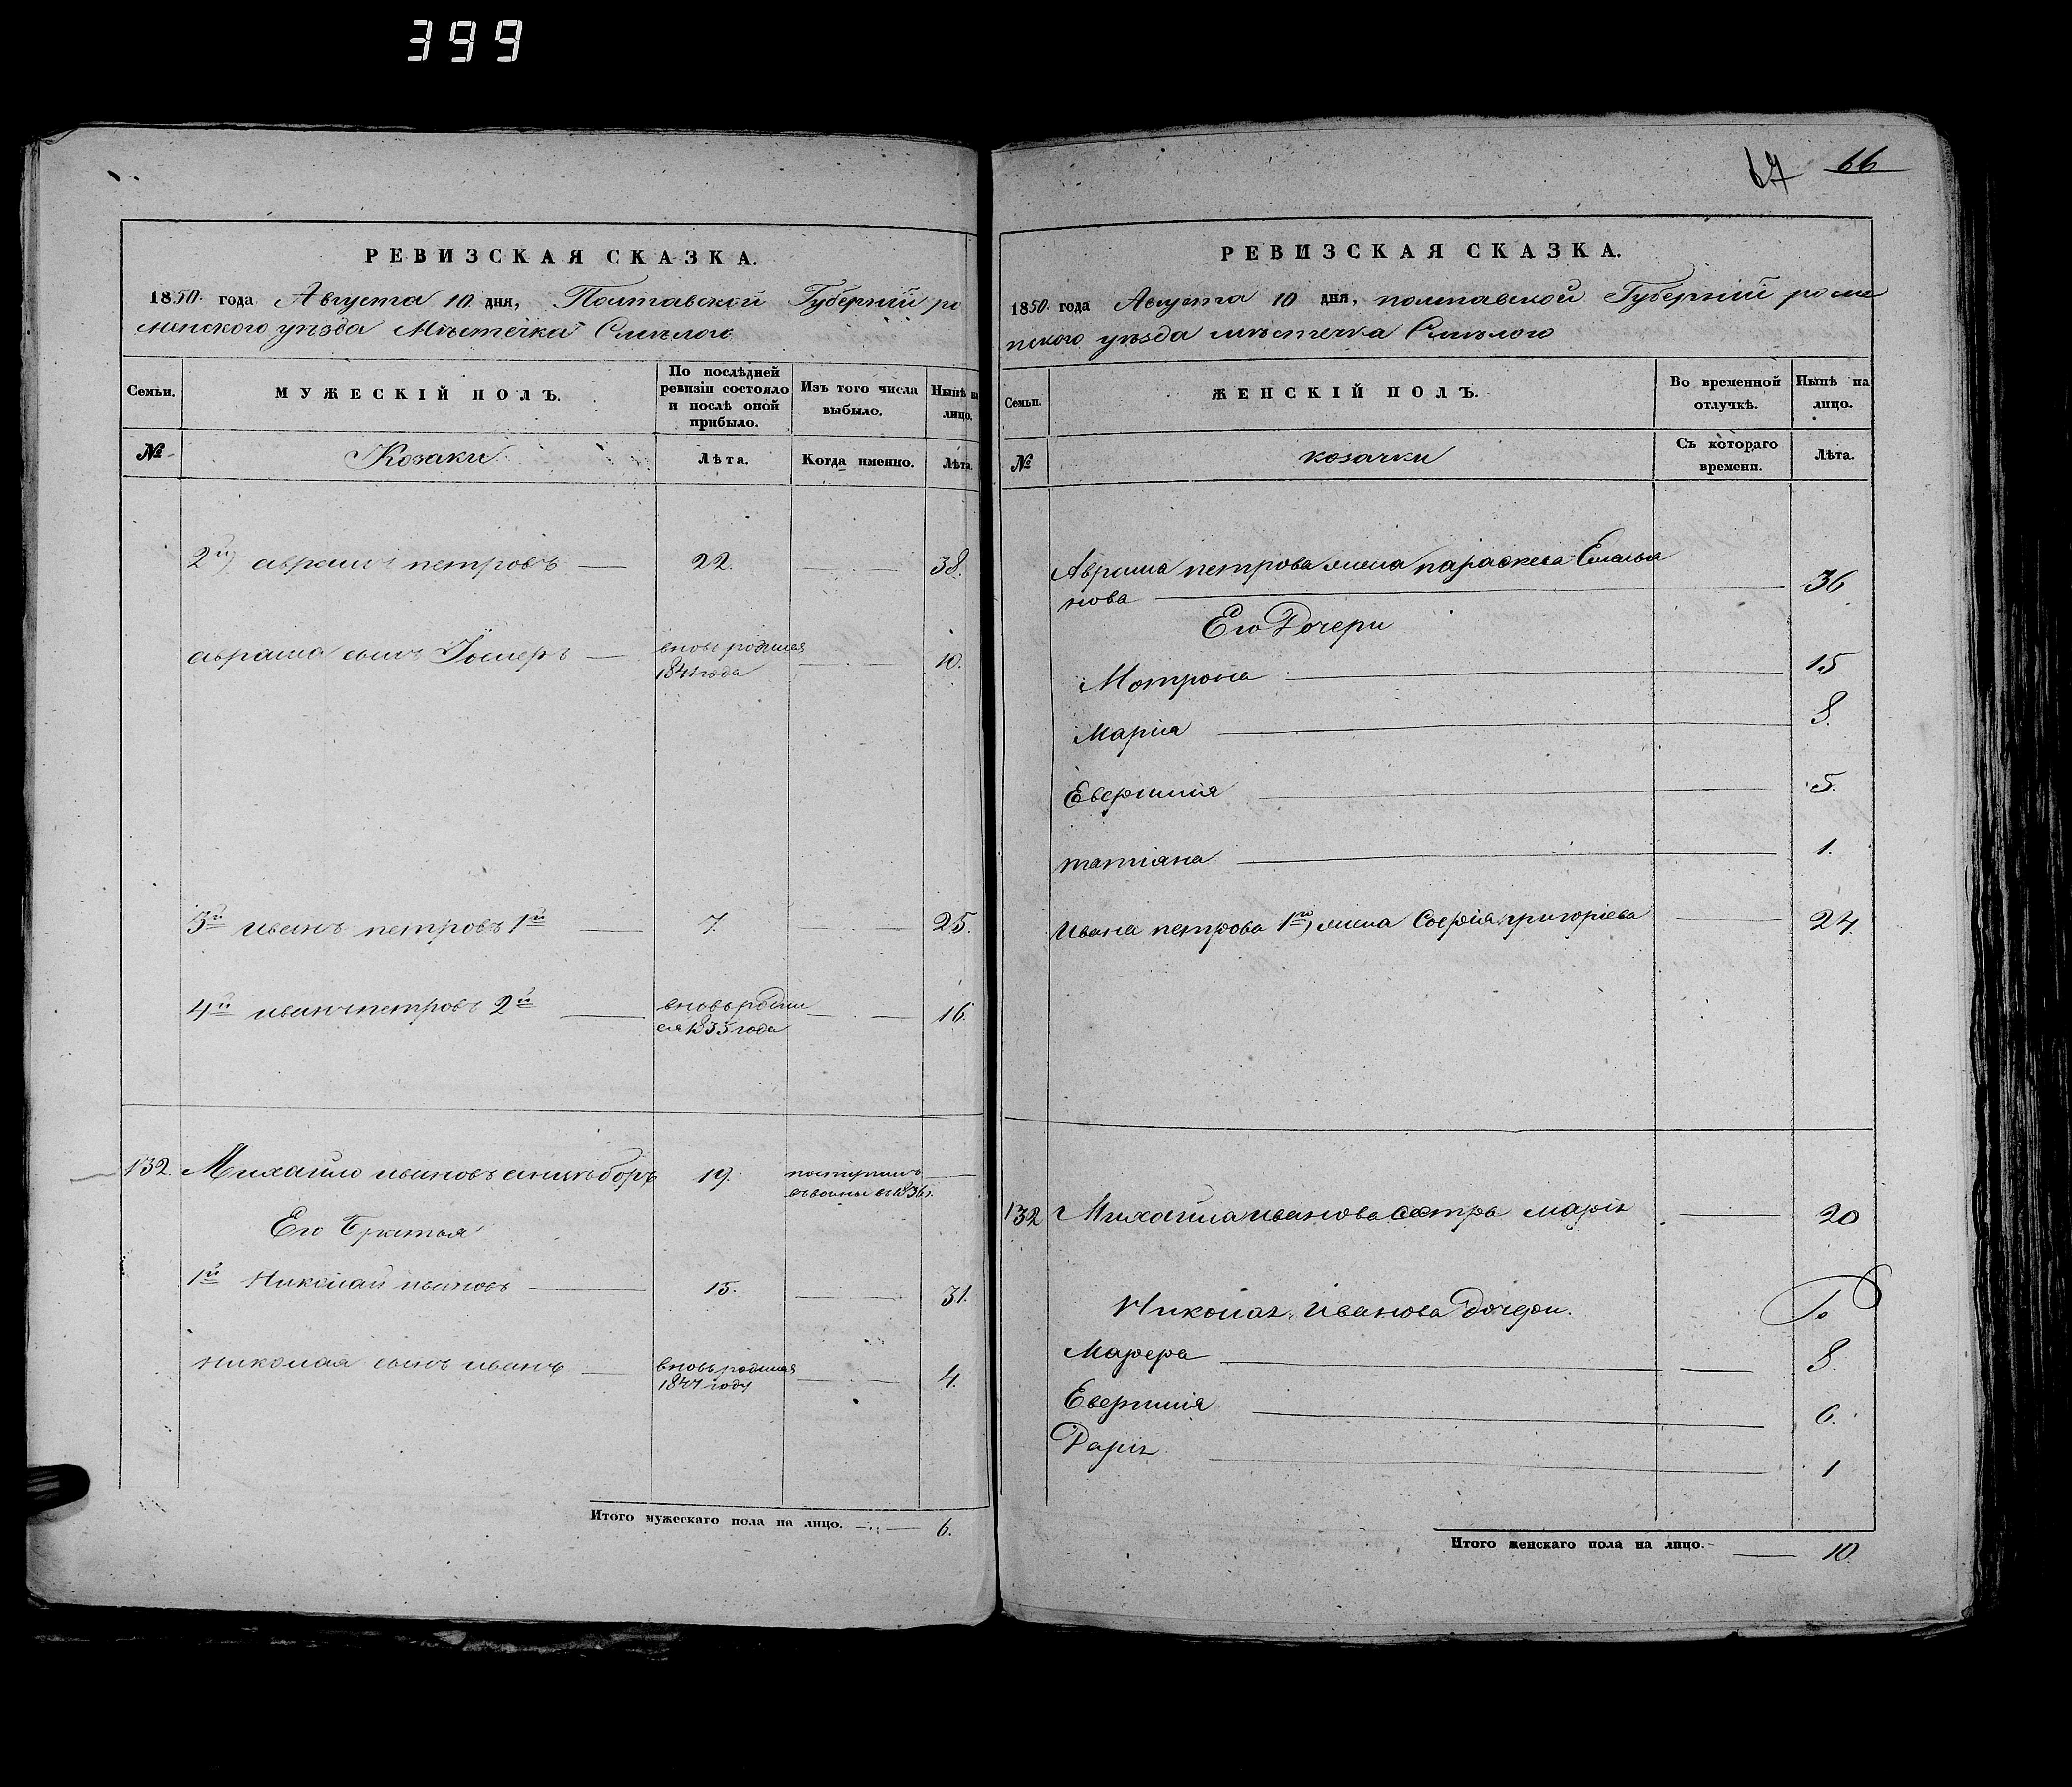 399
67 66
РЕВИЗСКАЯ СКАЗКА.
1850 года Августа 10 дня, Полтавской Губерніи ро
менского уѣзда Мѣстечка Смѣлого
Семьи. МУЖЕСКІЙ ПОЛЪ. По послѣдней ревизіи состояло и послѣ оной прибыло. Изъ того числа выбыло. Нынѣ на лицо.
№ Козаки Лѣта. Когда именно. Лѣта.
2й) аврамъ петровъ 22. 38.
аврама сынъ вновь родился 1841 года 10.
3й иванъ петровъ 1й 7. 25.
4й иванъ петровъ 2й вновь родил
ся 1835 года 16
132. Михайло ивановъ 19.
Его Братья
1й Николай ивановъ 15. 31.
николая сынъ иванъ вновь родился
году 4.
Итого мужескаго пола на лицо. 6.
РЕВИЗСКАЯ СКАЗКА.
1850 года Августа 10 дня, полтавской Губерніи роме
нского уѣзда мѣстечка Смѣлого
Семьи. ЖЕНСКІЙ ПОЛЪ. Во временной отлучкѣ. Нынѣ на лицо.
№ козачки Съ котораго времени. Лѣта.
Аврама петрова жена параскева Емелья
нова 36
Его Дочери
Мотрона 15
Марія 8.
Евфимия 5.
татіана 1.
Ивана петрова 1го) жена Софія григоріева 24.
132 Михайла иванова сестра марія 20
Николая иванова дочери.
Марфа 8.
Евфимія 6.
Дарія 1
Итого женскаго пола на лицо. 10